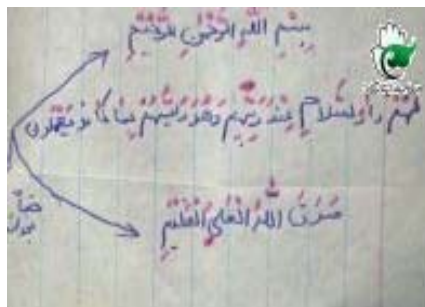 بِسْمِ اللَّهِ الرَّحْمٰنِ الرَّحِيْمِ
لَهُمْ دَارُ السَّلَامِ عِنْدَ رَبِّهِمْ وَهُوَ وَلِيُّهُمْ بِمَا كَانُوْ يَعْمَلُونَ
صَدَقَ اللهُ الْعَلِيُ الْعَظِيْمِ